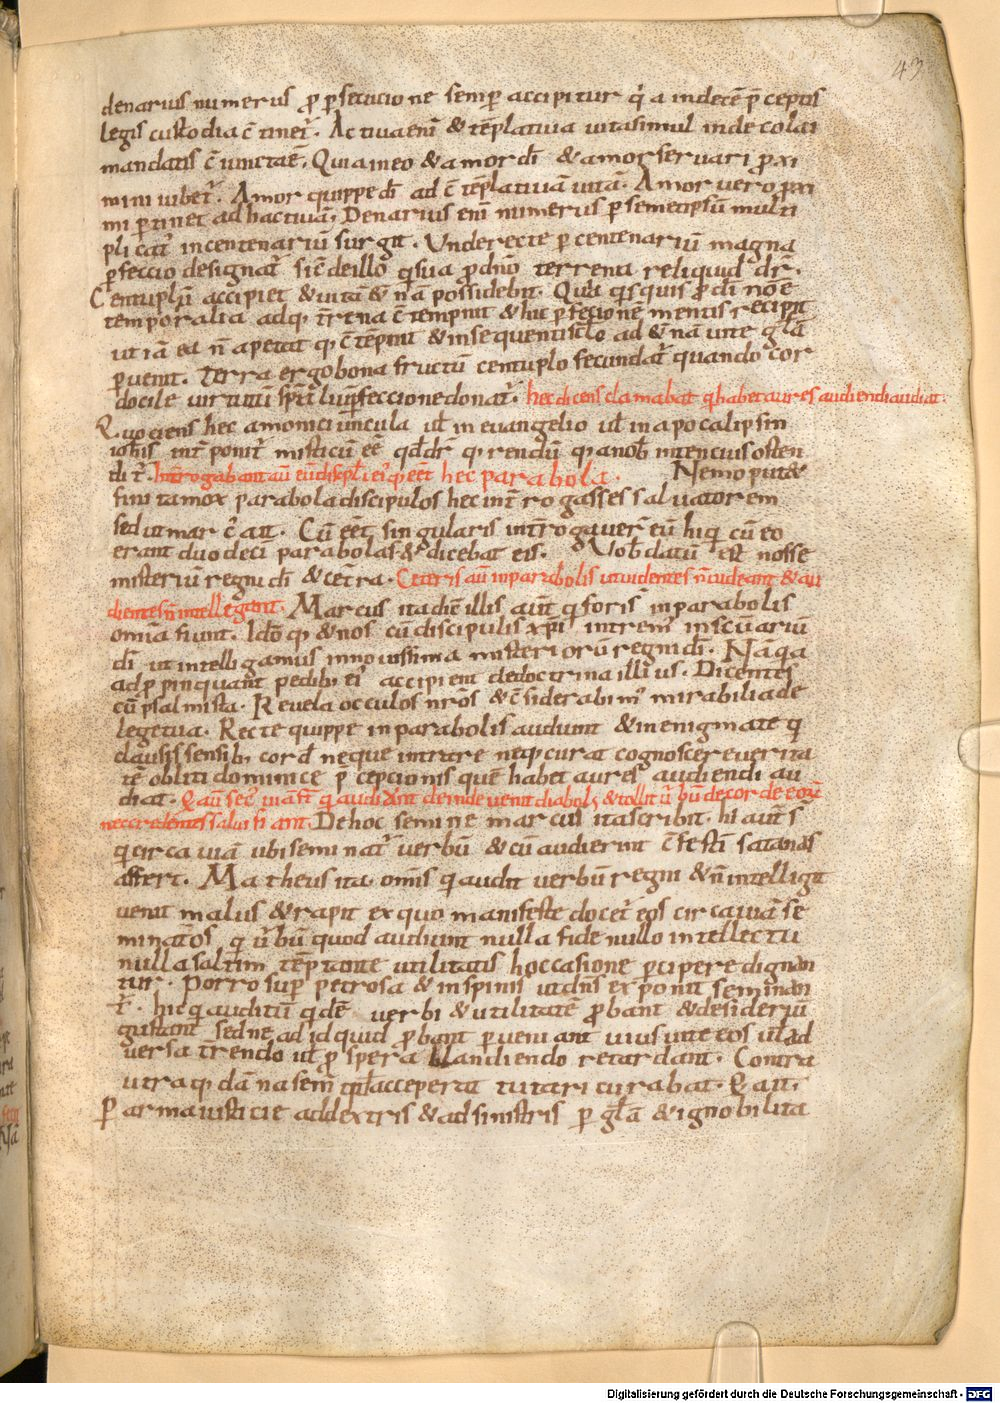 43
denarius numerus ꝓ ꝑsecucione semꝑ accipitur q̇a indecē p̄ceptis
legis custodia c̄tinet᷑. Actiua eni᷑ & tēplatiua uita simul in decolai
mandatis c̄iunctaē. Quia in eo & amor dī & amor seruari ꝓxi
mi ni iubet᷑. Amor quippe dī ad c̄tēplatiuā uitā. Amor uero ꝓxi
mi ꝑtinet ad hactiuā; Denarius enī numerus ꝑ semetipsū multi
plicat᷑ in centenariū surgit. Unde recte ꝑ centenariū magna
ꝑfeccio designat᷑ sic̄ de illo q̇ sua ꝓ dn̄o terrena reliquid dr̄.
Centuplū accipiet & uitā &n̄ā possidebit. Quia q̇squis ꝓ dī noē
temporalia adq; t̄rena c̄tempnit & hic ꝑfecionē mentis recipit
ut iā ea n̄ apetat q; c̄tēpnit & in sequenti sc̄lo ad &nā uite gl̄ā
ꝑuenit. Terra ergo bona fructū centuplo fecundat᷑ quando cor
docile uirtutū sp̄italiū ꝑfeccione donat᷑. hec dicens clamabat q̇ habet aures audiendi audiat.
Quociens hec amoniciuncula ul̄ in euangelio ul̄ in apocalipsin
iohīs int̄ponit᷑ misticū eē qd̄ dr̄ q̇rendū q; a nob̄ intencius osten
dit᷑. Int̄rogabant aū eū discipli ei᷒ q̇ eēt hec parabola. Nemo put&
finita mox parabola discipulos hec int̄rogasse salvatorem
sed ut mar c̄ ait. Cū eēt singularis int̄rogauer̄ eū hiq̇ cū eo
erant duodeci parabolas & dicebat eis. Vob̄ datū est nosse
misteriū regni dī & cet̄ra. Ceteris aū in parabolis ut uidentes n̄ uideant & au
dientes n̄ intellegant. Marcus ita dic̄ illis aūt q̇ foris in parabolis
omnia fiunt. Ido q; & nos cū discipulis xp̄i intrem᷒ in scūariū
dī ut intelligamus in nouissima misteriorū regni dī. Nā q̇ a
adꝓpinquant pedib; ei᷒ accipient de doctrina illius. Dicentes
cū psalmista. Reuela occulos nr̄os & c̄siderabim᷒ mirabilia de
lege tua. Recte quippe in parabolis audiunt & in enigmate q̇
clausis sensib; cord̄ neque intrare neq; curat cognoscere uerita
tē obliti dominice p̄cepcionis quē habet aures audiendi au
diat. Q aū sec᷒ uiā st̄ q̇ audiunt deinde uenit diabol᷒ & tollit u̇bū de corde eoꝝ
ne credentes salui fiant. De hoc semine marcus ita scribit. hi aut̄ s̄
q̇ circa uiā ubi seminat᷑ uerbū & cū audierint c̄festī satanas
affert. Matheus ita. omīs q̇ audit uerbū regni & n̄ intelligit
uenit malus & rapit ex quo manifeste docet᷑ eos circa uiā se
minatos q̇ u̇bū quod audiunt nulla fide nullo intellectu
nulla saltim tēptante utilitatis hoccasione ꝑcipere dignan
tur. Porro suꝑ petrosa & in spinis ut dn̄s exponit seminan
t᷑. hic q̇ auditū q̇dē uerbi & utilitatē ꝓbant & desideriū
gustant sed ne ad id quid ꝓbant ꝑueniant uius uite eos ul̄ ad
uersa t̄rendo ul̄ ꝓspera blandiendo retardant. Contra
utraq; dā nasem accepperat tutari curabat. Q ait;
Ꝑ arma iusticie ad dextris & ad sinistris ꝑ gl̄ā & ignobilita
Digitalisierung gefördert durch die Deutsche Forschungsgemeinschaft - DFG